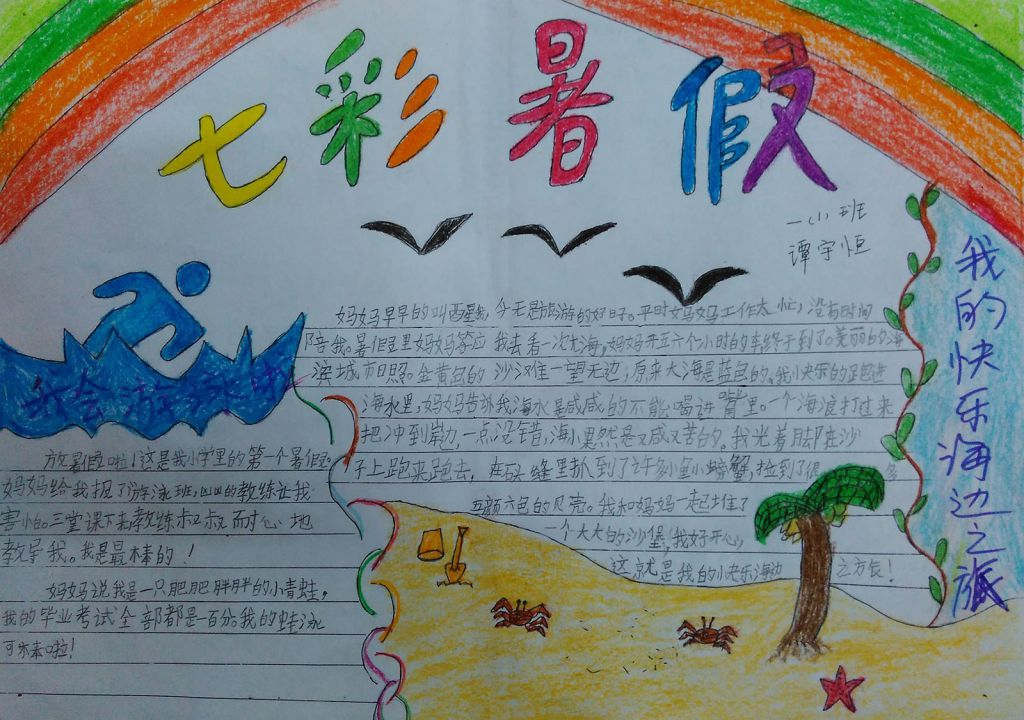 七彩暑假
一(1)班
谭宇恒
我的快乐海边之旅
妈妈早早的叫醒我,今天是旅游的好日子。平时妈妈工作太忙,没有时间
陪我。暑假里妈妈答应我去看一次大海,妈妈开五六个小时的车终于到了。美丽的海
滨城市日照。金黄色的沙滩一望无边,原来大海是蓝色的。我快乐的跑进
海水里,妈妈告诉我海水是咸咸的不能喝进嘴里。一个海浪打过来
把冲到岸边,一点没错,海水果然是又咸又苦的。我光着脚在沙
子上跑来跑去,在砖缝里抓到了许多小鱼小螃蟹,捡到了很多
五颜六色的贝壳。我和妈妈一起堆了
一个大大的沙堡,我好开心,
这就是我的小快乐海边之方氏!
我会游泳啦
放暑假啦!这是我小学里的第一个暑假
妈妈给我报了游泳班,凶凶的教练让我
害怕。三堂课下来教练叔叔耐心地
教导我。我是最棒的!
妈妈说我是一只肥肥胖胖的小青蛙,
我的毕业考试全部都是一百分,我的蛙泳
可棒啦!